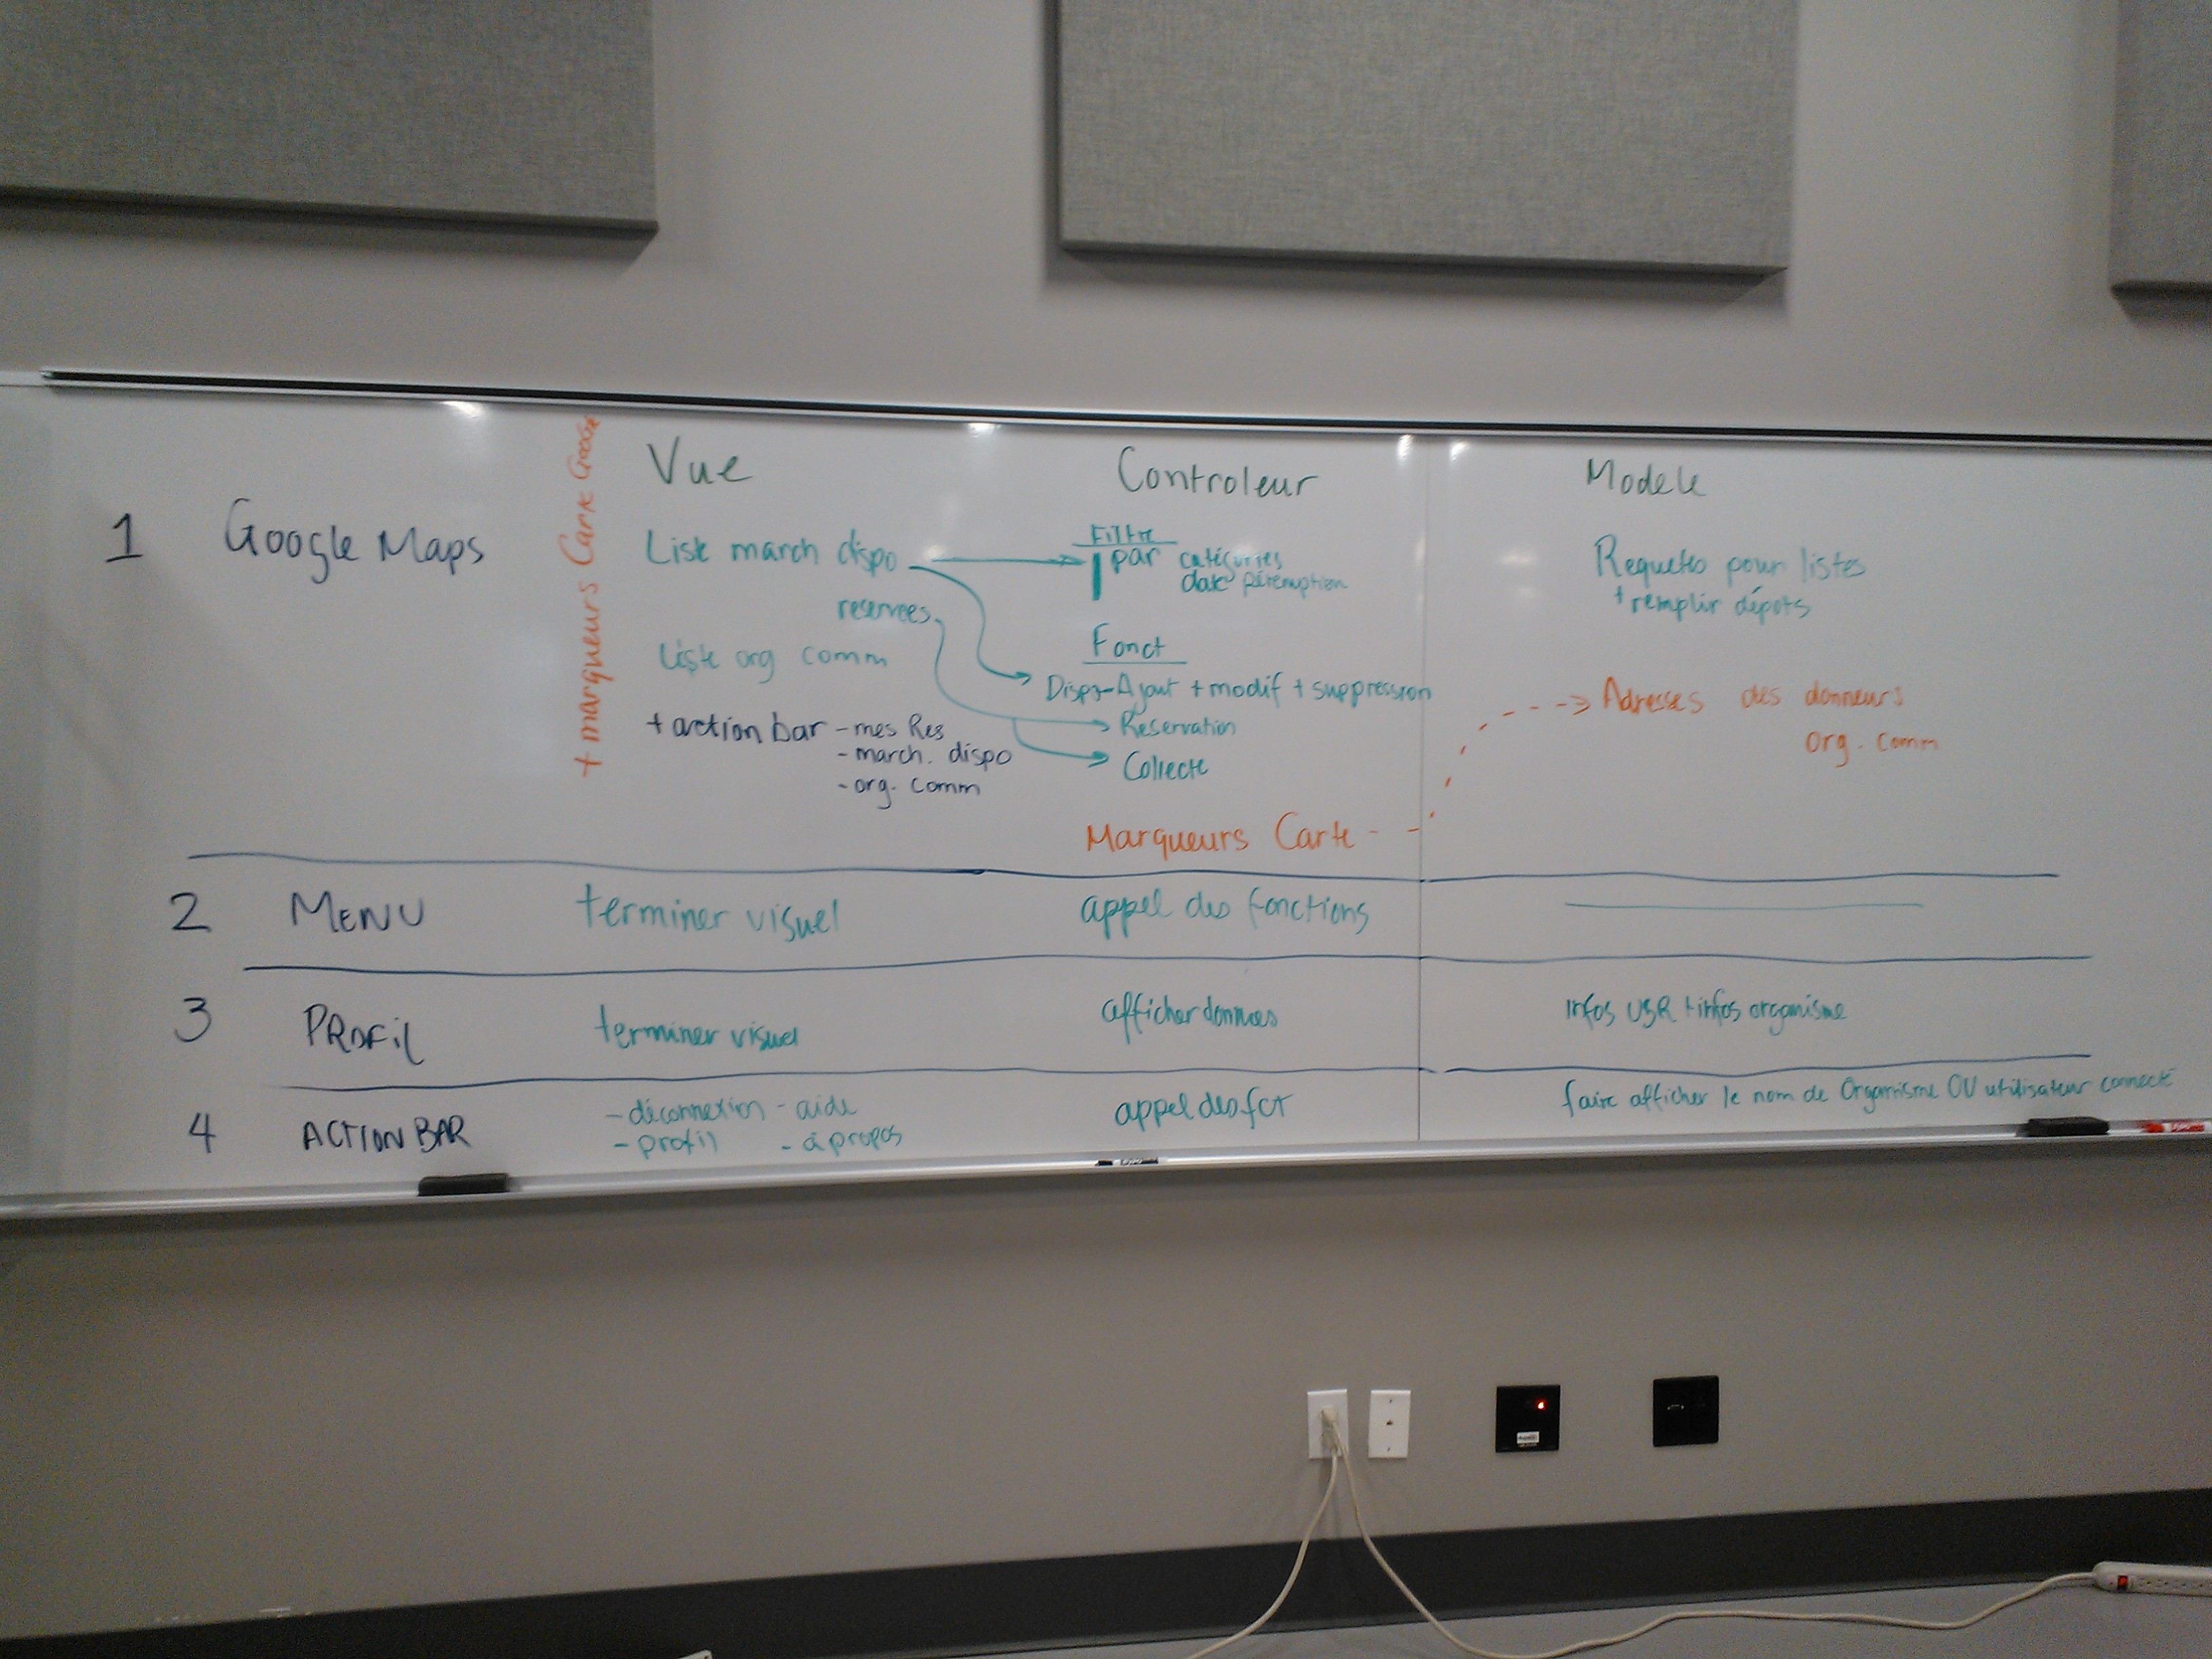 Vue
Controleur
Modele
1
Google Maps
+ marqueurs Carte Google
Liste march dispo
reservees
Liste org comm
+ action bar - mes Res
- march. dispo
- org. comm
Filtre
par catégories
date péremption
Fonct
Dispo-Ajout + modif + suppression
Reservation
Collecte
Marqueurs Carte
Requetes pour listes
+ remplir dépots
Adresses des donneurs
org. comm
2
MENU
terminer visuel
appel des fonctions
3
PROFil
terminer visuel
afficher donnees
infos USR + infos organisme
4
ACTION BAR
- déconnexion - aide
- profil - à propos
appel des fct
faire afficher le nom de Organisme OU utilisateur connecté